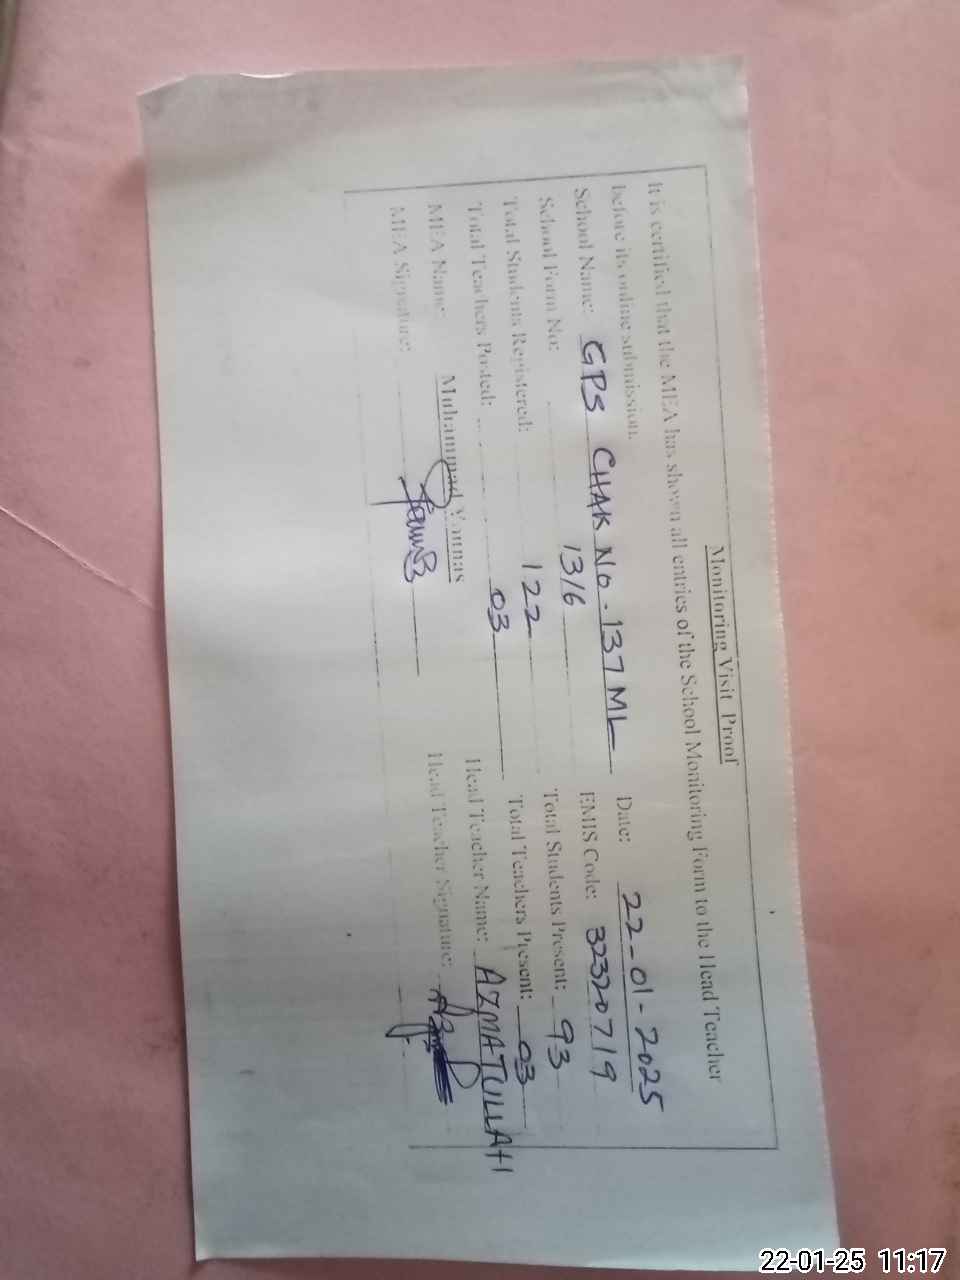 Monitoring Visit Proof
It is certified that the MEA has shown all entries of the School Monitoring Form to the Head Teacher
before its online submission.
School Name: GPS CHAK No. 137 ML Date: 22-01-2025
School Form No: 1316 EMIS Code: 32320719
Total Students Registered: 122 Total Students Present: 93
Total Teachers Posted: 03 Total Teachers Present: 03
MEA Name: Muhammad Younas Head Teacher Name: AZMATULLAH
MEA Signature: Head Teacher Signature:
22-01-25 11:17